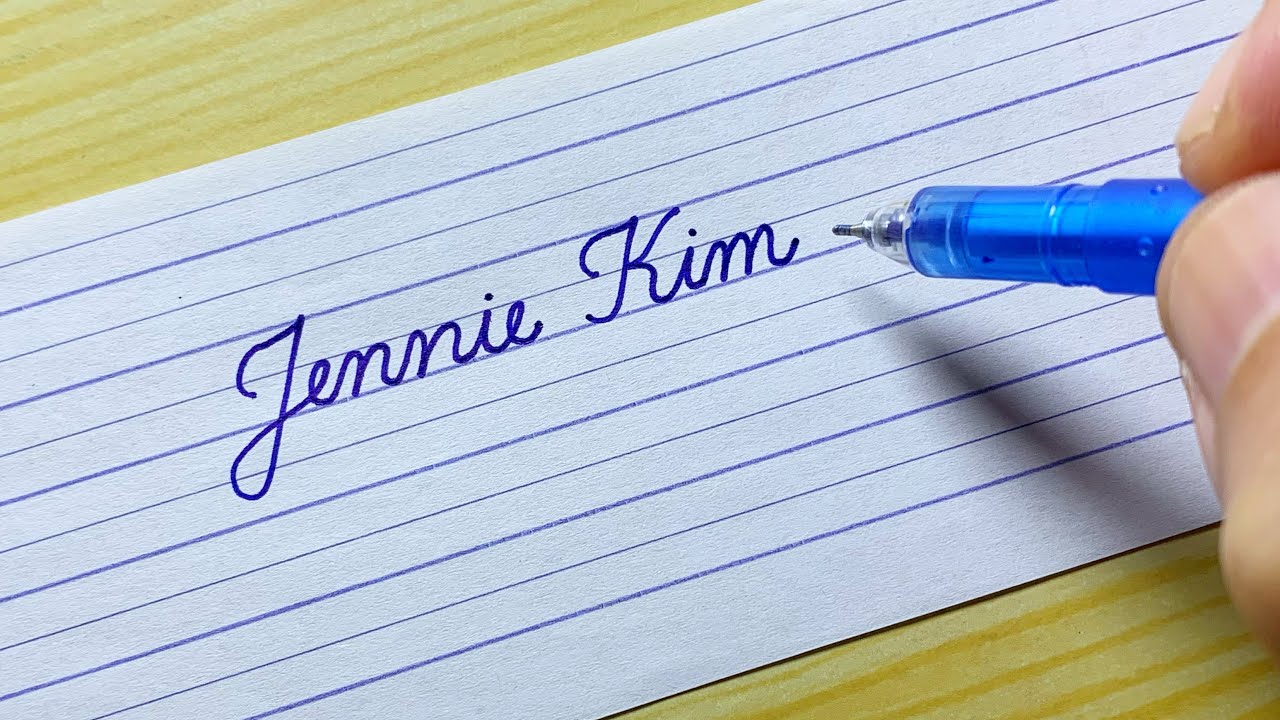 Jennie Kim